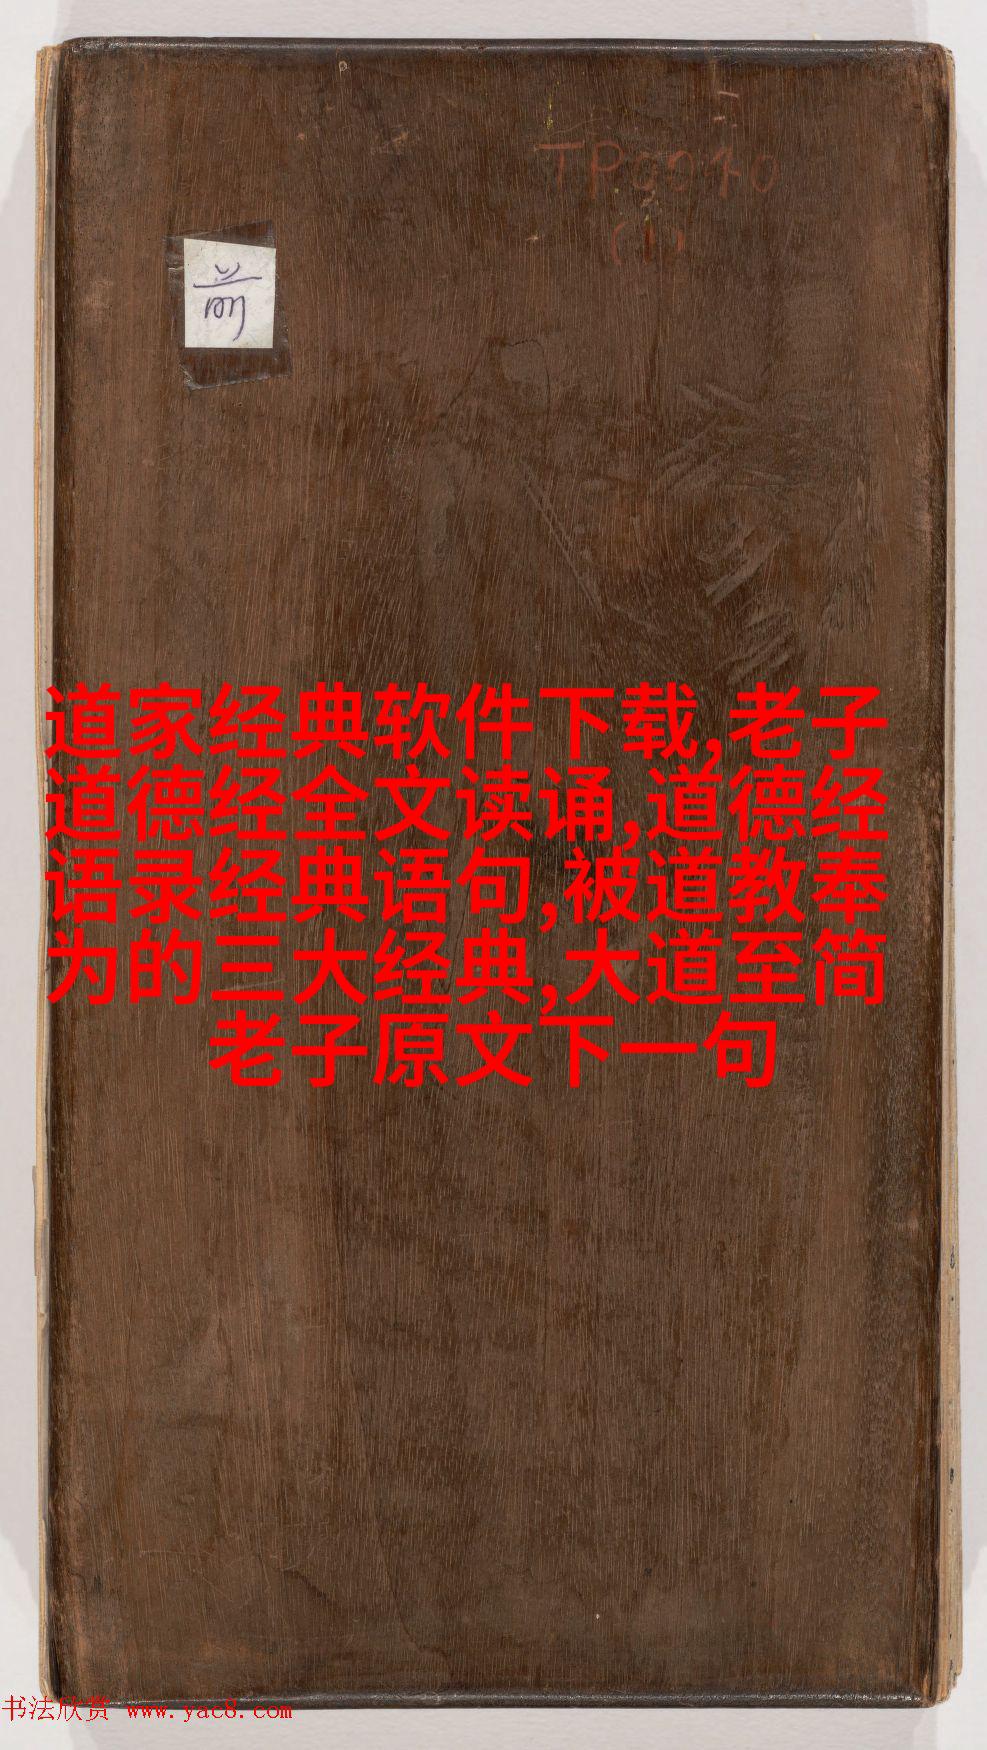 TP0040
(1)
前
道家经典软件下载,老子
道德经全文读诵,道德经
语录经典语句,被道教奉
为的三大经典,大道至简
老子原文下一句
书法欣赏 www.yac8.com